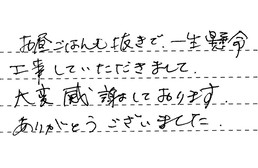 お昼ごはんも抜きで、一生懸命
工事していただきまして、
大変感謝しております。
ありがとうございました。